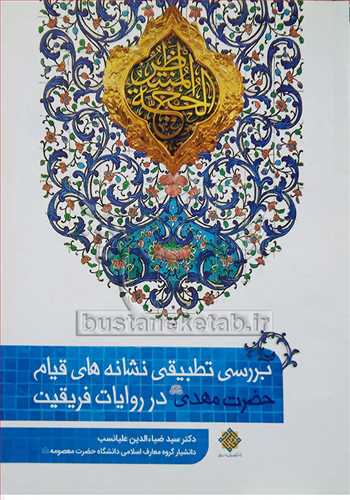 الحجة
المنتظر
bustaneketab.ir
بررسی تطبیقی نشانه های قیام
حضرت مهدی در روایات فریقین
دکتر سید ضیاءالدین علیانسب
دانشیار گروه معارف اسلامی دانشگاه حضرت معصومه